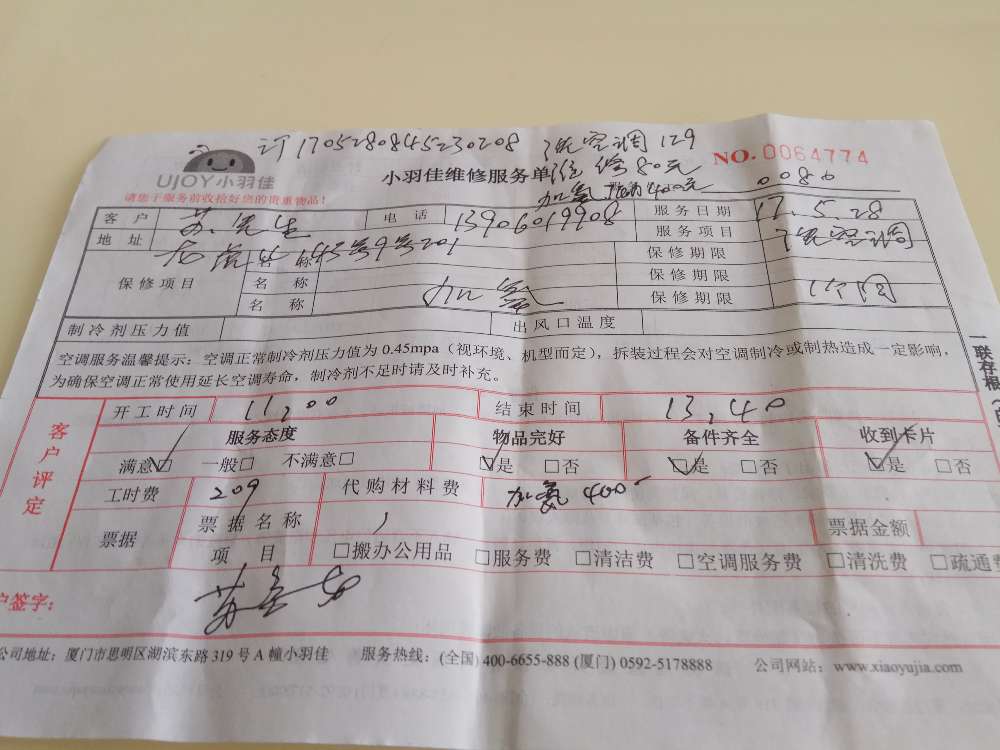 订1705280845230208 洗空调129
UJOY小羽佳 小羽佳维修服务单 维修80元 NO.0064774
请您于服务前收拾好您的贵重物品! 加氨 400元 0080
客户 苏先生 电话 13906019908 服务日期 17.5.28
地址 43号9号201 服务项目 洗空调
保修项目 名称 保修期限
名称 加氨 保修期限
名称 保修期限 1个月
制冷剂压力值 出风口温度
空调服务温馨提示:空调正常制冷剂压力值为0.45mpa(视环境、机型而定),拆装过程会对空调制冷或制热造成一定影响,
为确保空调正常使用延长空调寿命,制冷剂不足时请及时补充。
一联存根
客户评定
开工时间 11,00 结束时间 13,40
服务态度 物品完好 备件齐全 收到卡片
满意☑ 一般□ 不满意□ ☑是 □否 ☑是 □否 ☑是 □否
工时费 209 代购材料费 加氨400-
票据 票据名称 票据金额
项目 □搬办公用品 □服务费 □清洁费 □空调服务费 □清洗费 □疏通费
户签字:
公司地址:厦门市思明区湖滨东路319号A幢小羽佳 服务热线:(全国)400-6655-888(厦门)0592-5178888 公司网站:www.xiaoyujia.com